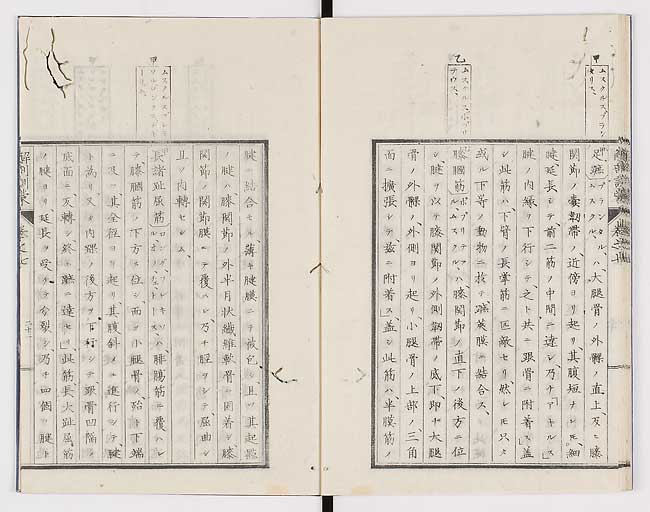 甲
ムスクルスプラン
タリス、
乙
ムスクルス、ポプリ
テウス、
足蹠プランタルハ、大腿骨ノ外髁ノ直上、及ヒ膝
関節ノ嚢靭帯ノ近傍ヨリ起リ、其腹短ナレ𪜈、細
腱延長シテ前二筋ノ中間ニ達シ乃チ「アキルス」
腱ノ内縁ヲ下行シテ、之ト共ニ跟骨ニ附着ス」蓋
シ此筋ハ、下臂ノ長掌筋ニ匹敵セリ然レ𪜈只々
或ル下等ノ動物ニ於テ蹠葉膜ニ結合ス、
膝膕筋ムスクル、ポプリテアハ、膝関節ノ直下ノ後方ニ位
シ、腱ヲ以テ膝関節ノ外側靭帯ノ底下、即チ大腿
骨ノ外髁ノ外側ヨリ起リ、小腿骨ノ上部ノ三角
面ニ擴張シテ、茲ニ附着ス」蓋シ此筋ハ、半膜筋ノ
腱ニ結合セル、薄キ腱膜ニテ被包シ、且ツ其起器
ノ腱ハ、膝関節ノ外半月状繊維軟骨ニ固着シ、膝
関節ノ関節膜ニテ覆ハレ乃チ脛ヲシテ、屈曲シ
且ツ内轉セシム、
長諸趾屈筋ハ、腓膓筋ニ覆ハレ
テ、膝膕筋ノ下方ニ位シ、而シテ小腿骨ノ殆ト下端
ニ及フ其全徑ヨリ起リ、其腹斜メニ進行シテ、腱
ト為リ、又タ内踝ノ後方ヲ下行シテ、跟骨凹陥ノ
底面ニ反轉シ、終ニ蹠ニ達セリ」此筋、長大趾屈筋
ノ腱ヨリ延長ヲ受ケテ分裂シ、乃チ四個ノ腱ト
解剖訓蒙
巻之七